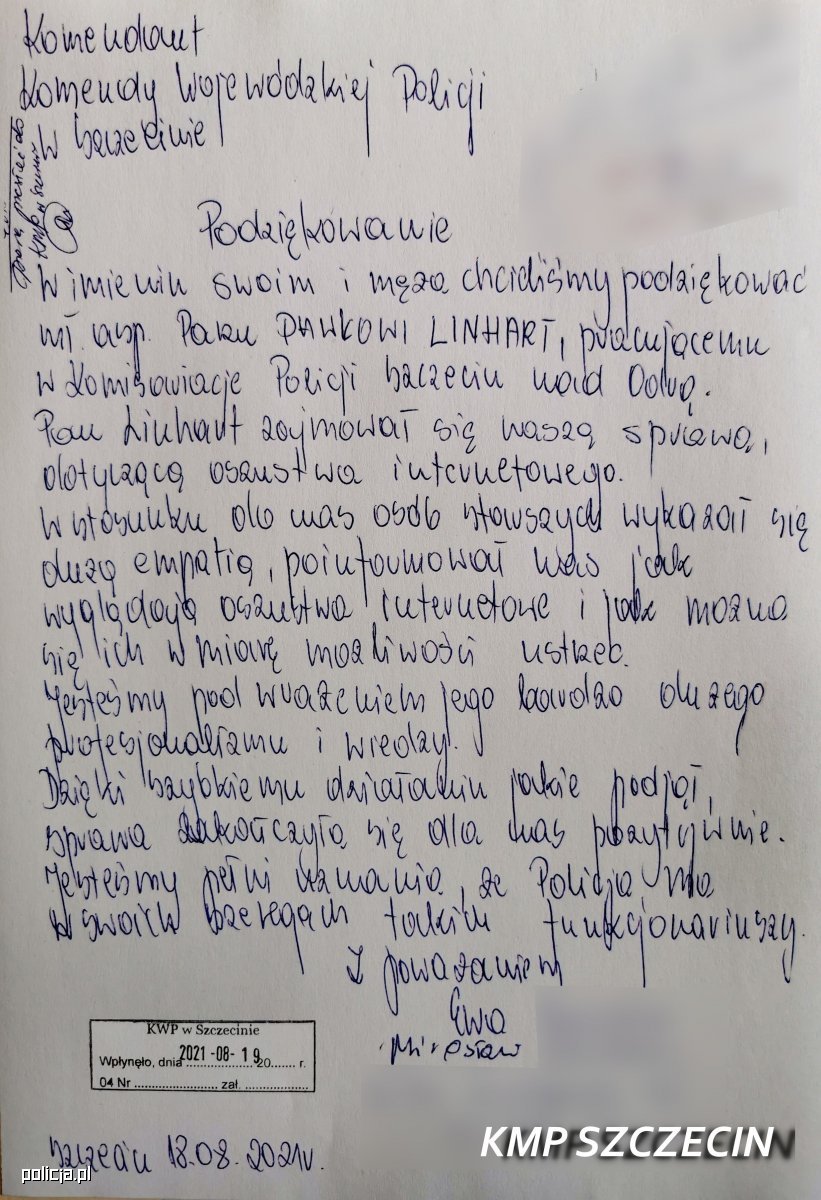 Komendant
Komendy Wojewódzkiej Policji
w Szczecinie
KMP w
Podziękowanie
W imieniu swoim i męża chcieliśmy podziękować
mł. asp. Panu DAWKOWI LINHART, pracującemu
w Komisariacie Policji Szczecin nad Odrą.
Pan Linhart zajmował się naszą sprawą,
dotyczącą oszustwa internetowego.
W stosunku do nas osób starszych wykazał się
dużą empatią, poinformował nas jak
wyglądają oszustwa internetowe i jak można
się ich w miarę możliwości ustrzec.
Jesteśmy pod wrażeniem jego bardzo dużego
profesjonalizmu i wiedzy.
Dzięki szybkiemu działaniu jakie podjął,
sprawa zakończyła się dla nas pozytywnie.
Jesteśmy pełni uznania, że Policja ma
w swoich szeregach takich funkcjonariuszy.
Z poważaniem
Ewa
Mirosław
KWP w Szczecinie
Wpłynęło, dnia 2021-08-19 20....... r.
04 Nr ........................ zał. ..................
Szczecin 18.08.2021r.
KMP SZCZECIN
policja.pl